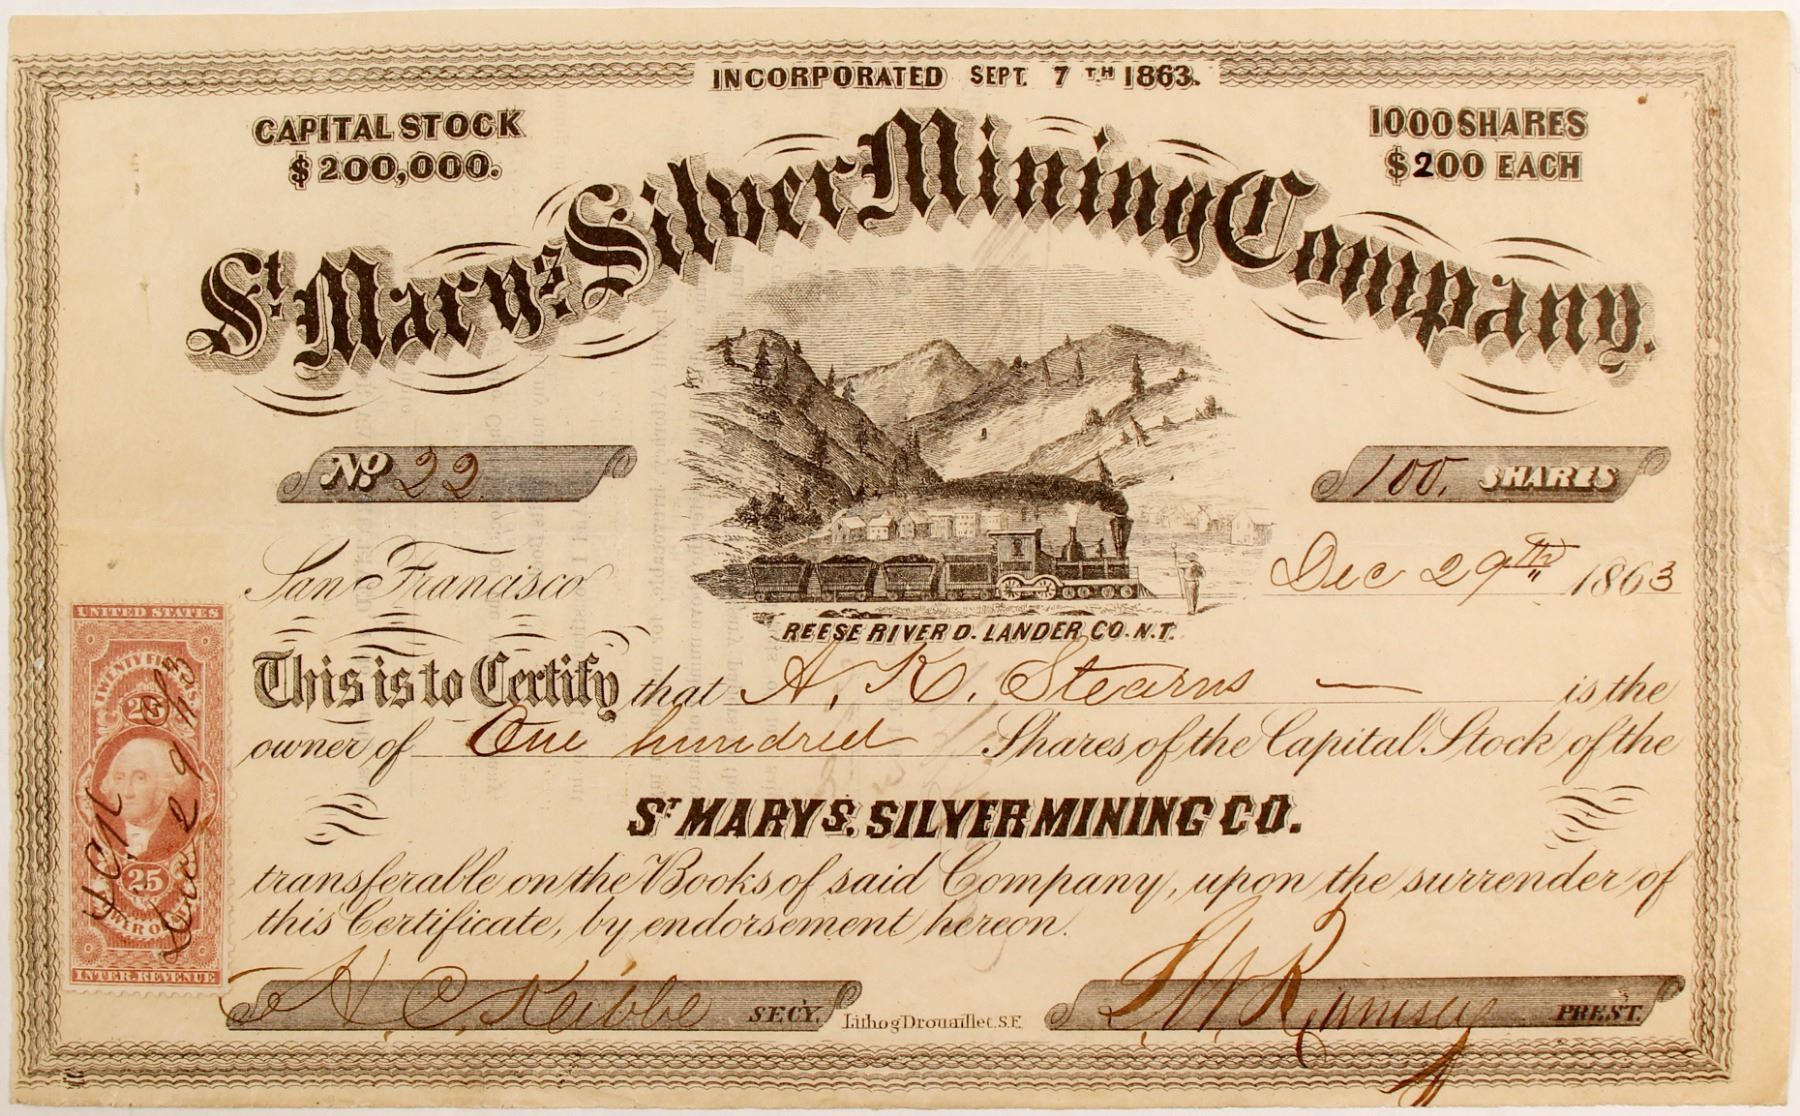 INCORPORATED SEPT. 7TH 1863.
CAPITAL STOCK
$200,000.
1000 SHARES
$200 EACH
St. Mary's Silver Mining Company.
No 22
100. SHARES
San Francisco
Dec 29th 1863
REESE RIVER D. LANDER CO. N.T.
This is to Certify that A. K. Stearns — is the
owner of One hundred Shares of the Capital Stock of the
ST MARYS. SILVER MINING CO.
transferable on the Books of said Company, upon the surrender of
this Certificate, by endorsement hereon.
H. C. Kibbe SECY.
Lithog Drouaillet. S.F.
Ramsey PREST.
UNITED STATES
TWENTY FIVE CENTS
25
25
INTER. REVENUE
H.C.K
Dec 29/63